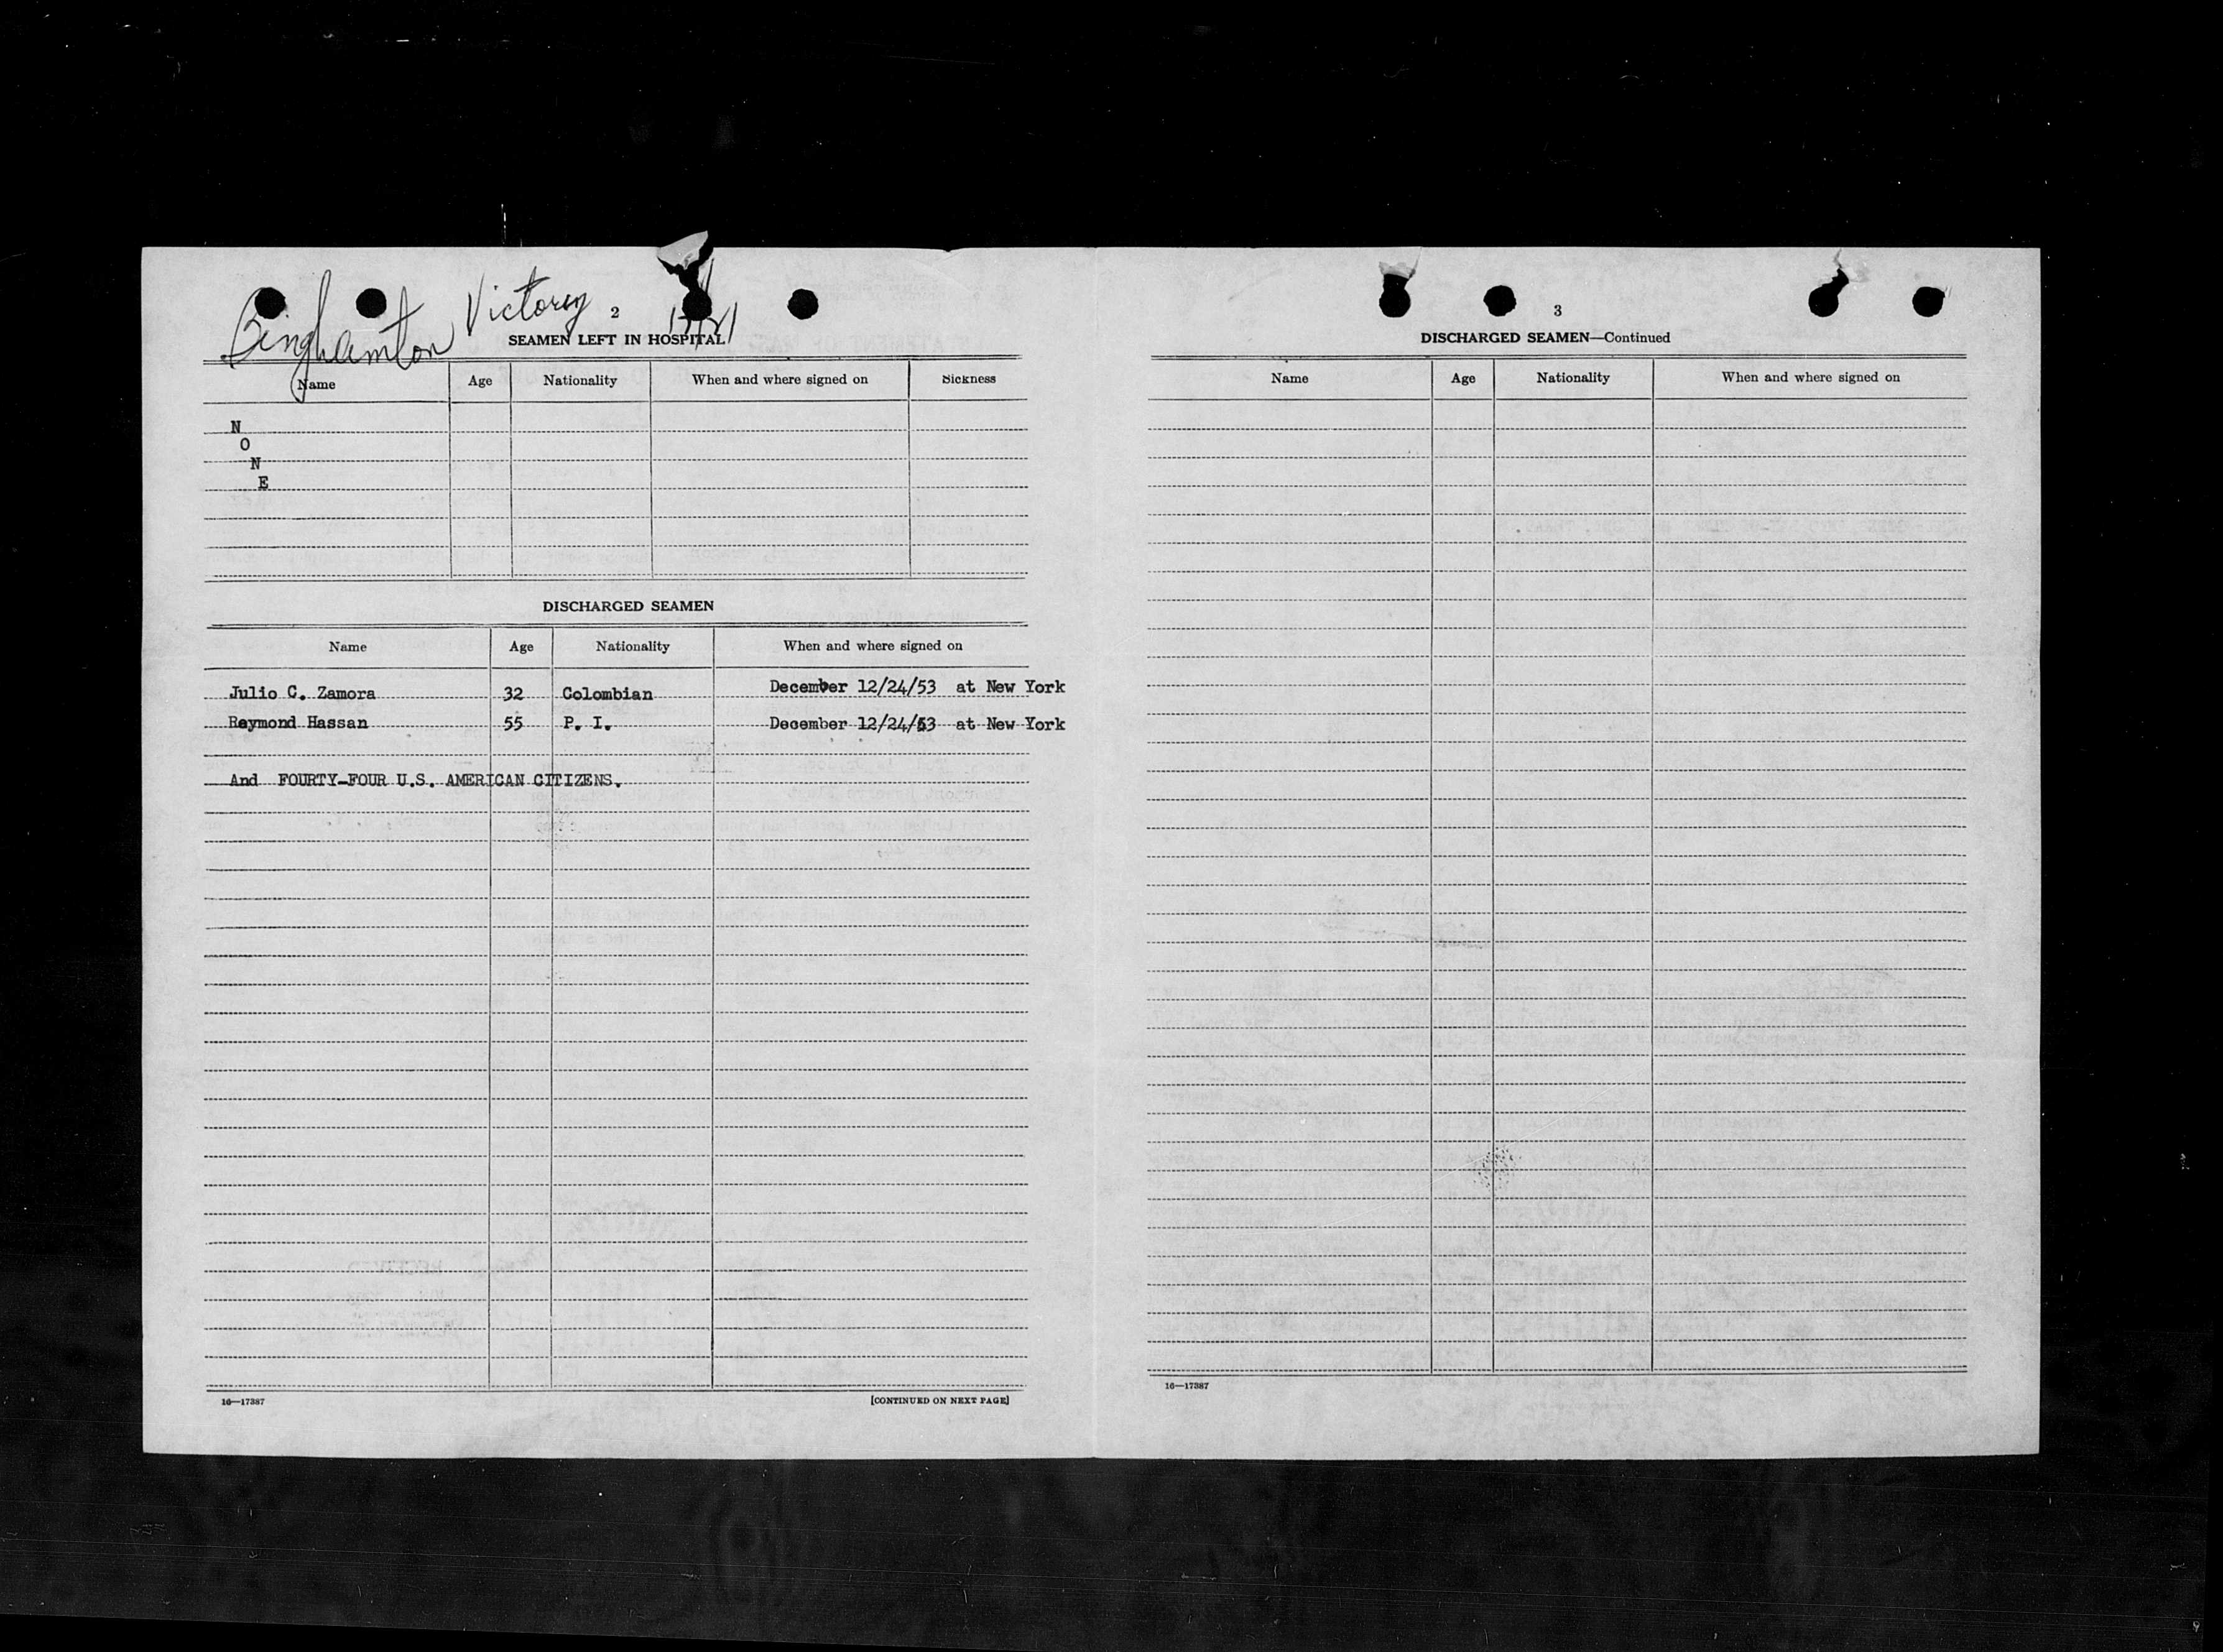 Binghamton Victory
2
SEAMEN LEFT IN HOSPITAL
Name Age Nationality When and where signed on Sickness
N
O
N
E
DISCHARGED SEAMEN
Name Age Nationality When and where signed on
Julio C. Zamora 32 Colombian December 12/24/53 at New York
Raymond Hassan 55 P. I. December 12/24/53 at New York
And FOURTY-FOUR U.S. AMERICAN CITIZENS.
16—17387 [CONTINUED ON NEXT PAGE]
3
DISCHARGED SEAMEN—Continued
Name Age Nationality When and where signed on
16—17387